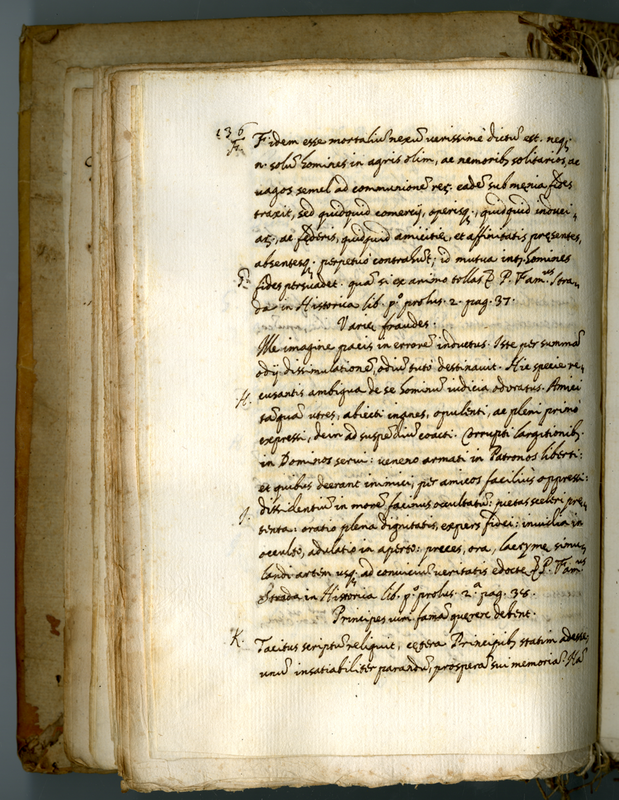 136
F. Fidem esse mortaliũ nexũ verissimè dictũ est. neq;
n. solũ homines in agris olim, ac nemorib, solitarios, ac
vagos semel ad communionẽ reg. eadẽ sub męnia fides
traxit, sed quidquid comercij, operisq., quidquid
ac federis, quidquid amicitię, et affinitatis pręsentes,
absentesq. perpetuò contrahũt, id mutua int. homines
G. fides persuadet. quã si ex animo tollas P. P. Fam.us Stra-
da in Historica lib. p.º prolus. 2. pag. 37.
Varię fraudes.
Me imagine pacis in errorẽ inductus. Iste per summã
odij dissimulationẽ, odiũ tutò destinavit. Hic specie re-
H. cusantis ambigua de se hominũ iudicia odoratus. Amici
tãquã utres, abiecti inanes, opulenti, ac pleni primò
expressi, dein ad suspẽdiũ coacti. Corrupti largitionib,
in Dominos serui: veneno armati in Patronos liberti:
et quibus deerant inimici, per amicos facilius oppressi:
J. dissidentiũ in morẽ facinus occultatũ: pietas sceleri prę-
tenta: oratio plena dignitatis, expers fidei: inuidia in
occulto, adulatio in aperto: preces, ora, lacrymę simu-
landi artem usq. ad conuiciũ veritatis edoctę P. P. Fam.us
Strada in Historica lib. p.º prolus. 2.ª pag. 38.
Principes cum famã querere debent.
K. Tacitus scriptũ reliquit, cętera Principib, statim adesse,
unũ insatiabiliter parandũ, prosperã sui memoriã. Nã